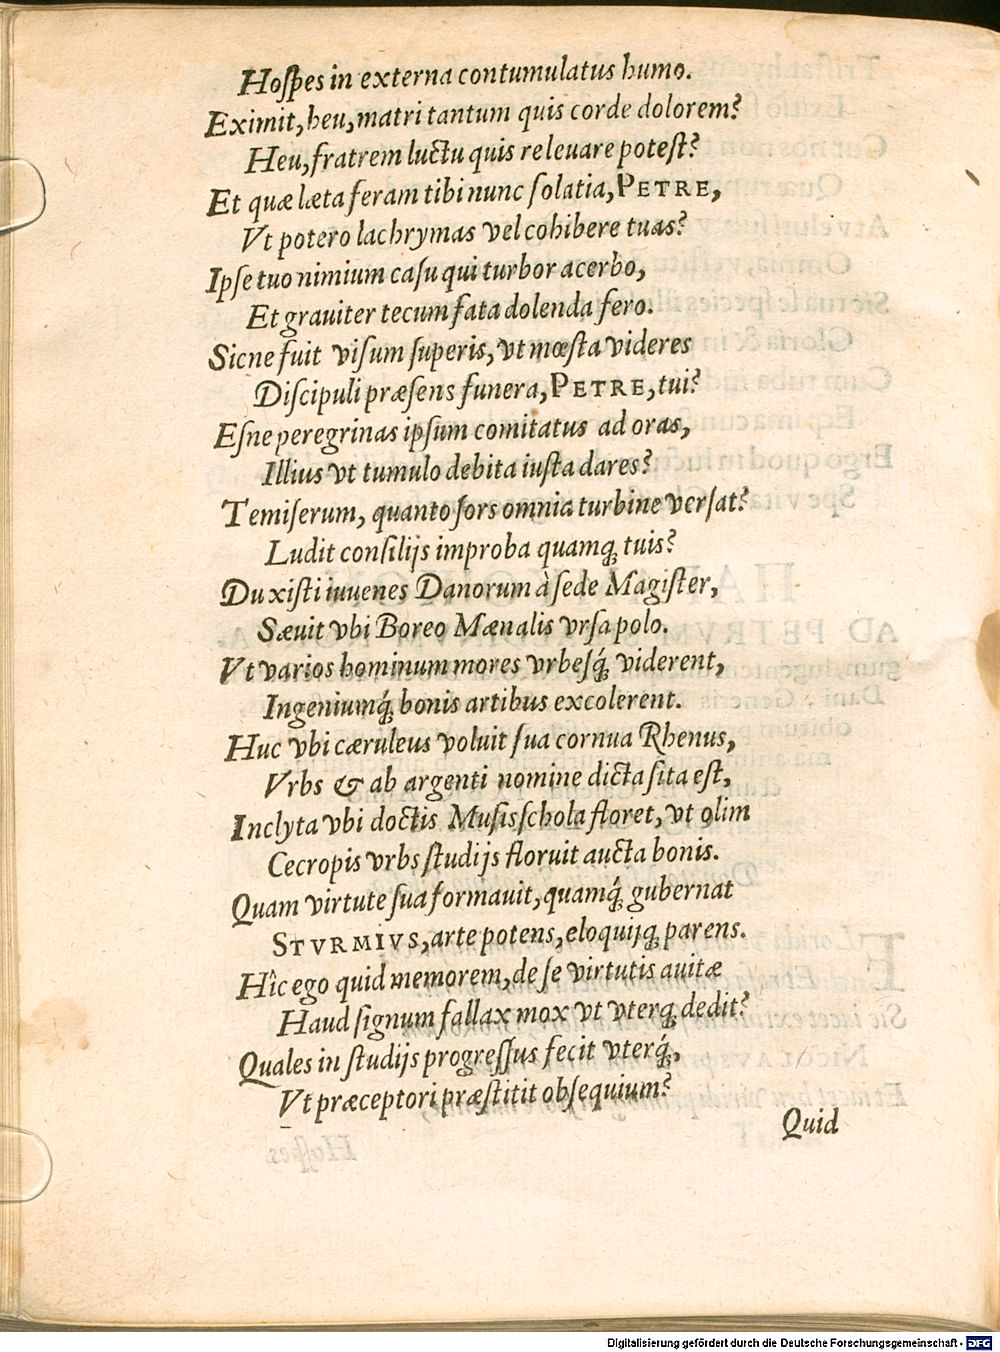 Hoſpes in externa contumulatus humo.
Eximit, heu, matri tantum quis corde dolorem?
Heu, fratrem luctu quis releuare poteſt?
Et quæ læta feram tibi nunc ſolatia, PETRE,
Vt potero lachrymas vel cohibere tuas?
Ipſe tuo nimium caſu qui turbor acerbo,
Et grauiter tecum fata dolenda fero.
Sicne fuit viſum ſuperis, vt mœſta videres
Diſcipuli præſens funera, PETRE, tui?
Eſne peregrinas ipſum comitatus ad oras,
Illius vt tumulo debita iuſta dares?
Te miſerum, quanto ſors omnia turbine verſat?
Ludit conſilijs improba quamq́; tuis?
Duxiſti iuuenes Danorum à ſede Magiſter,
Sæuit vbi Boreo Mænalis vrſa polo.
Vt varios hominum mores vrbeſq́; viderent,
Ingeniumq́; bonis artibus excolerent.
Huc vbi cæruleus voluit ſua cornua Rhenus,
Vrbs & ab argenti nomine dicta ſita eſt,
Inclyta vbi doctis Muſis ſchola floret, vt olim
Cecropis vrbs ſtudijs floruit aucta bonis.
Quam virtute ſua formauit, quamq́; gubernat
STVRMIVS, arte potens, eloquijq́; parens.
Hîc ego quid memorem, de ſe virtutis auitæ
Haud ſignum fallax mox vt vterq́; dedit?
Quales in ſtudijs progreſſus fecit vterq́;,
Vt præceptori præſtitit obſequium?
Quid
Digitalisierung gefördert durch die Deutsche Forschungsgemeinschaft - DFG